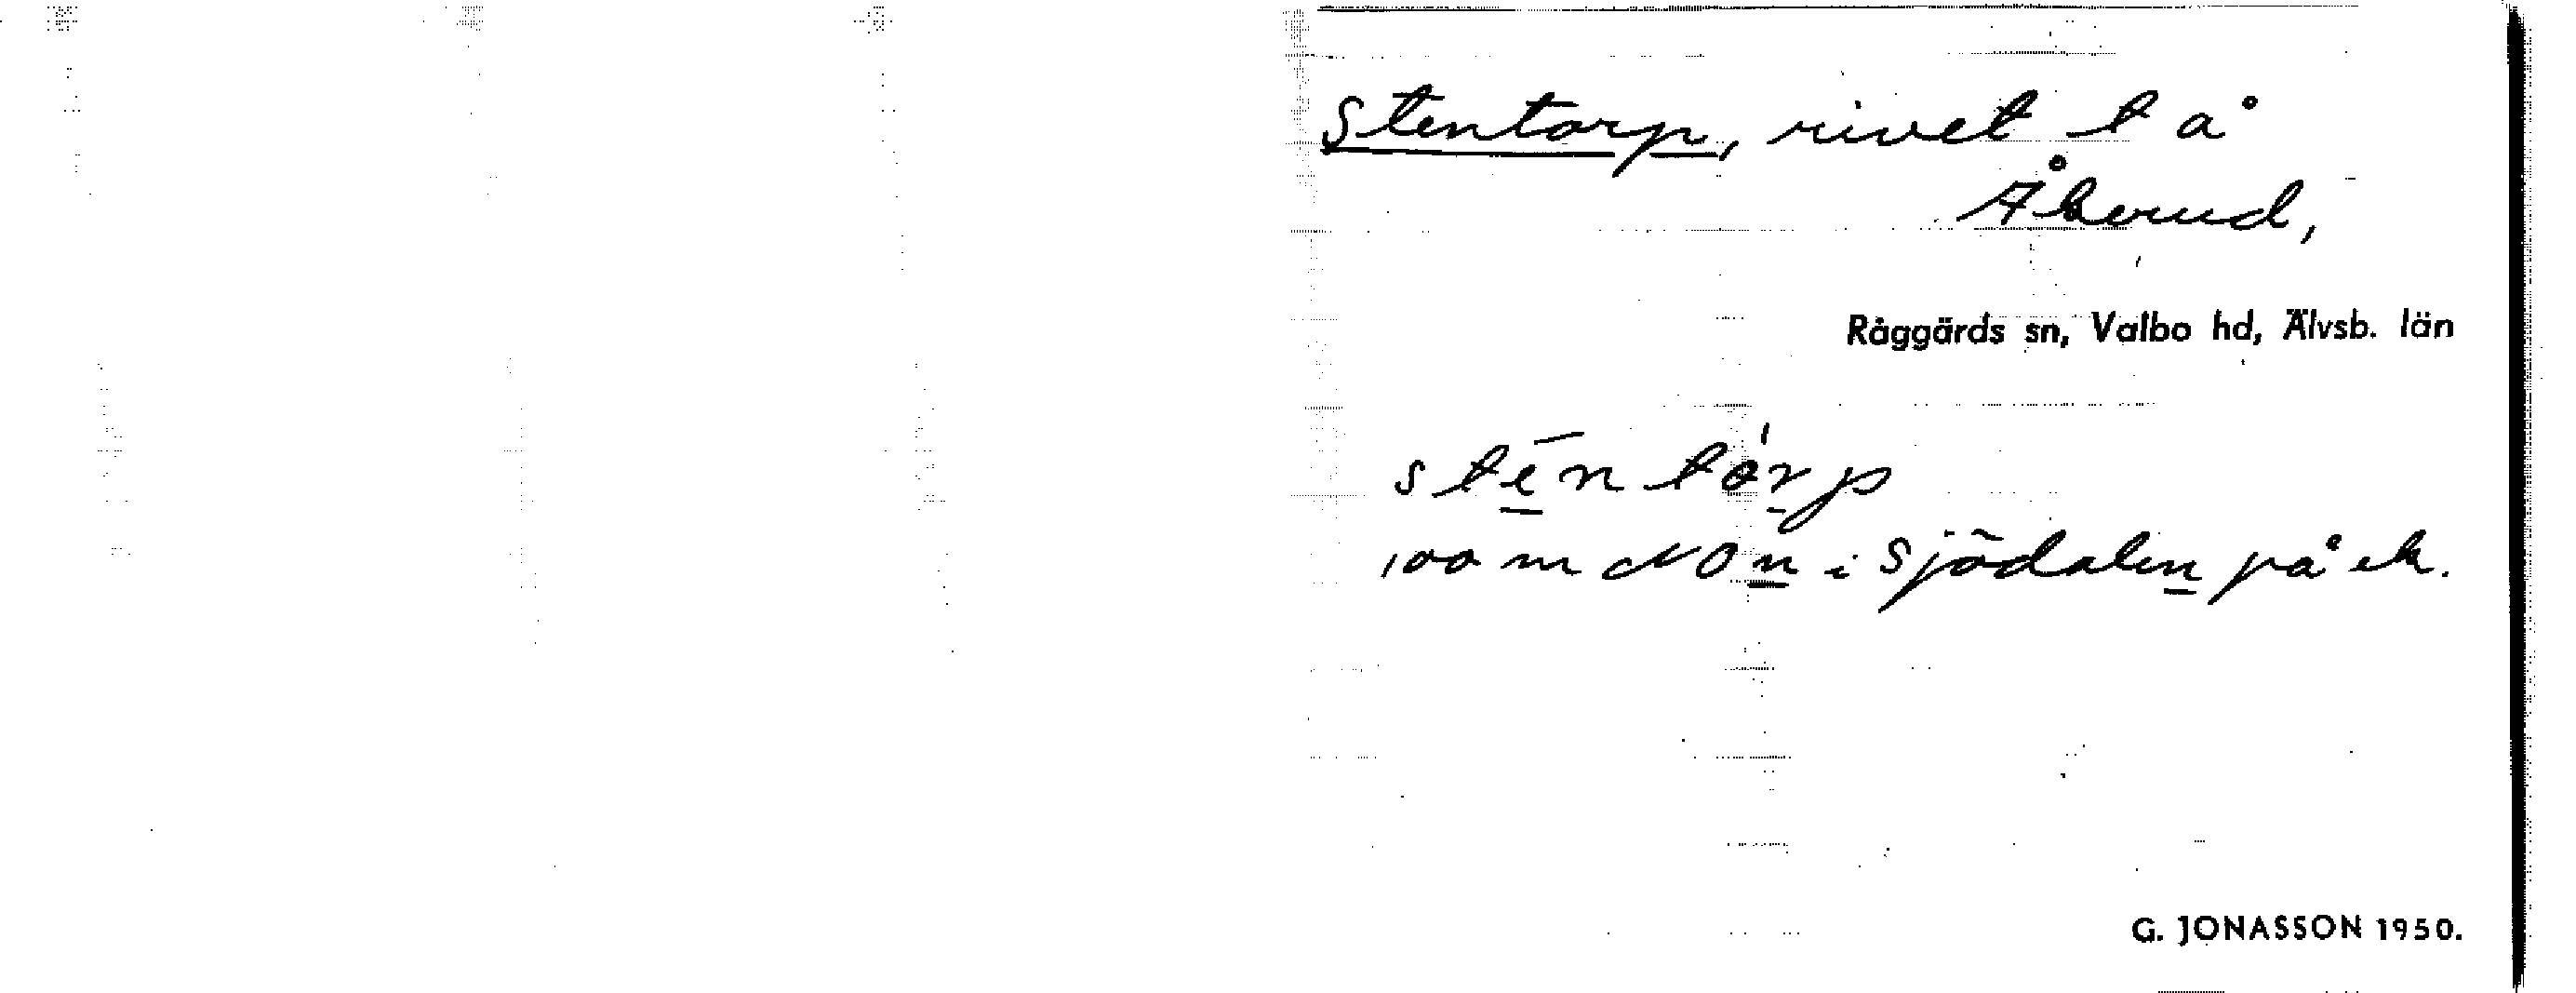 Stentorp, rivet t å
Åberud,
Råggärds sn, Valbo hd, Älvsb. län
sténtårp
100 m NO n i Sjödalen på ek.
G. JONASSON 1950.